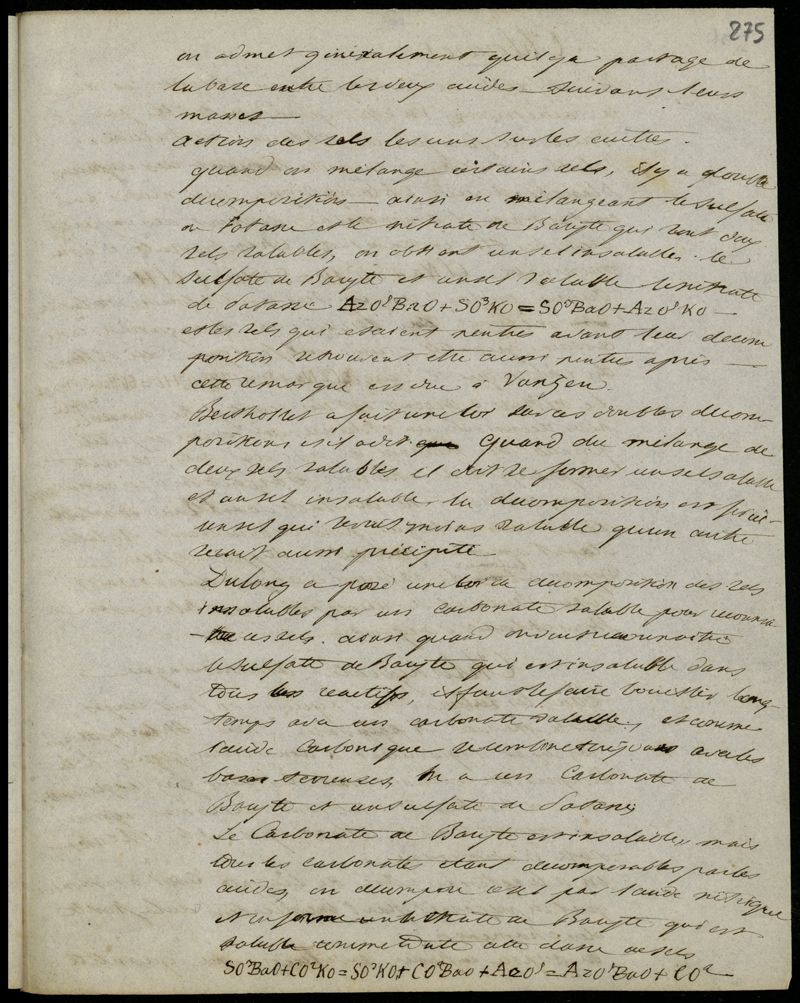 275
on admet généralement qu'il y a partage de
la base entre les deux acides suivant leurs
masses
action des sels les uns sur les autres.
quand on mélange certains sels, il y a double
décomposition ainsi en mélangeant le sulfate
de Potasse et le nitrate de Baryte qui sont deux
sels solubles, on obtient un sel insoluble le
sulfate de Baryte et un sel soluble le nitrate
de Potasse AzO⁵BaO + SO³KO = SO³BaO + AzO⁵KO
et les sels qui étaient neutres avant leur décom
position se trouvent être aussi neutres après
cette remarque est due à
Berthollet a fait une loi sur ces doubles décom-
positions et il a dit que quand du mélange de
deux sels solubles il doit se former un sel soluble
et un sel insoluble la décomposition est
un sel qui serait moins soluble qu'un autre
serait aussi précipité
Dulong a posé une loi de décomposition des sels
insolubles par un carbonate soluble pour reconnaî
tre ces sels. ainsi quand on veut reconnaitre
le sulfate de Baryte qui est insoluble dans
tous les réactifs, il faut le faire bouillir long-
temps avec un carbonate soluble, et comme
l'acide carbonique se combine toujours avec les
bases terreuses, on a un Carbonate de
Baryte et un sulfate de Potasse
Le Carbonate de Baryte est insoluble, mais
tous les carbonates étant décomposables par les
acides, on décompose celui par l'acide nitrique
et on forme un nitrate de Baryte qui est
soluble comme toute cette classe de sels
SO³BaO + CO²KO = SO³KO + CO²BaO + AzO⁵ = AzO⁵BaO + CO²